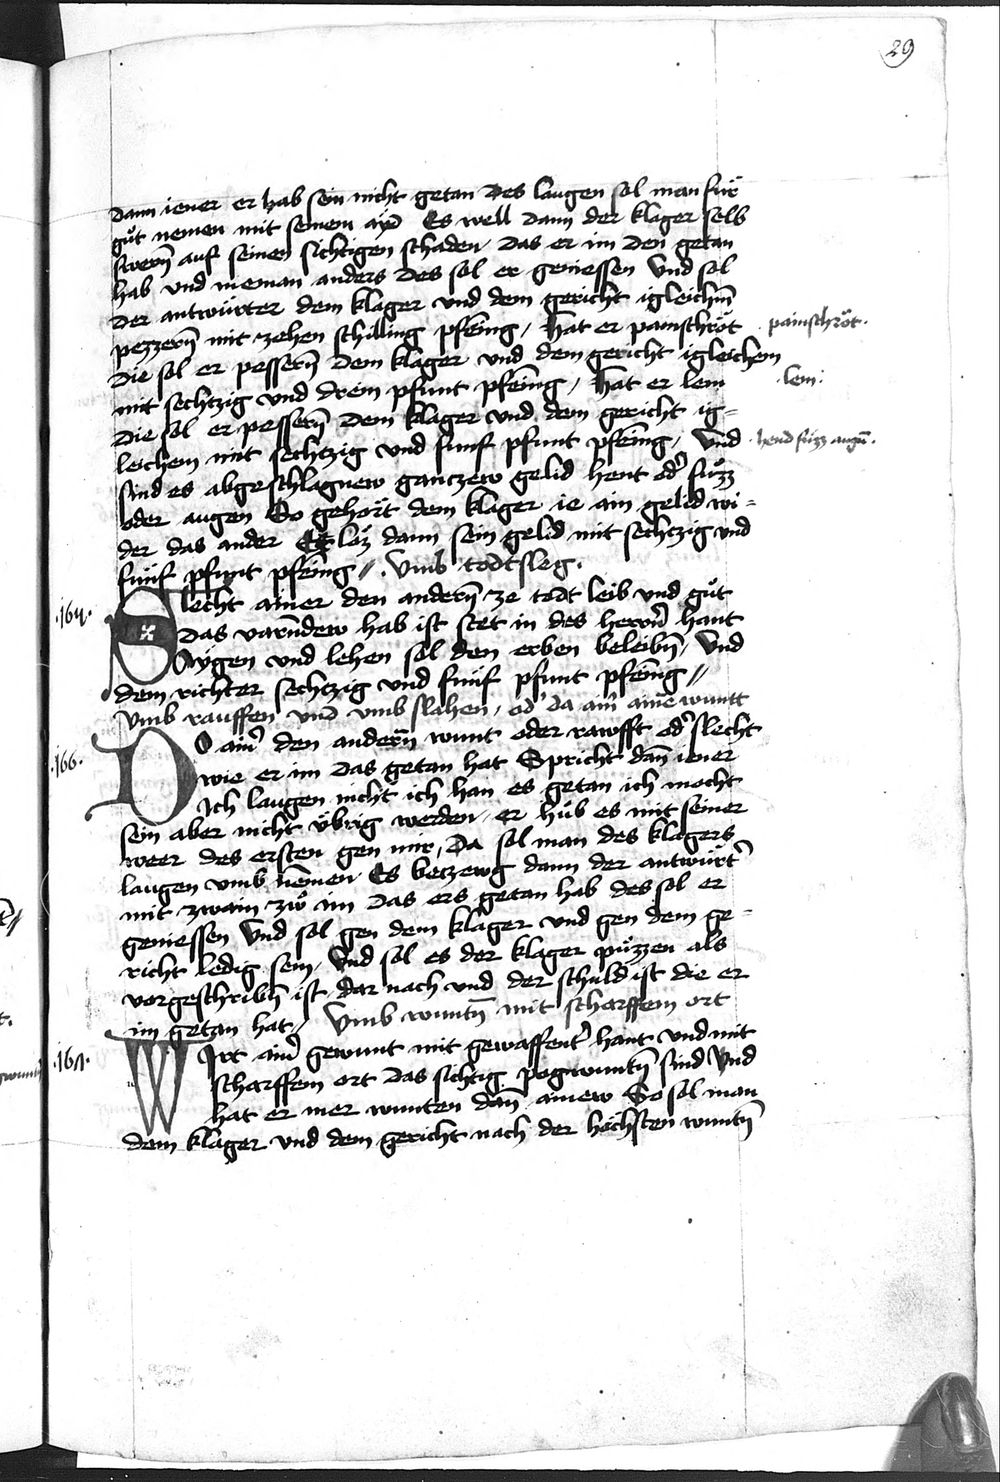 29
dann iener er hab sein nicht getan Des laugen sol man für
gůt nemen mit seinem ayd Es well dann der klager selb
swern̄ auf seinen sichtigen schaden Das er im den getan
hab vnd nieman anders Des sol er geniessen Vnd sol
Der antwürter dem klager vnd dem gericht igleichm̄
pezzern̄ mit zehen schilling pfēing / Hat er painschröt
painschröt.
die sol er pessern̄ dem klager vnd dem gericht igleichem
mit sechtzig vnd drein pfunt pfēing / Hat er lem
lem
die sol er pessern̄ dem klager vnd dem gericht ig=
leichem mit sechtzig vnd fünf pfunt pfēing / Vnd
hend füzz augn̄.
sind es abgeschlagnew ganczew gelid hent od' füzz
oder augen So gehört dem klager ie ain gelid wi=
der das ander Er löz dann sein gelid mit sechtzig vnd
fünf pfunt pfēing // Vmb todtsleg.
.164.
Slecht ainer den andern̄ ze todt leib vnd gůt
Das varundew hab ist stet in des herrn̄ hant
Aygen vnd lehen sol den erben beleibn̄ / Vnd
dem richter sechtzig vnd fünf pfunt pfēing //
Vmb rauffen vnd vmb slahen / od' da ain' aine wuntt
.166.
DO ain' den andern̄ wunt oder rawfft od' slecht
wie er im das getan hat Spricht dan̄ iener
Ich laugen nicht ich han es getan ich mocht
sein aber nicht übrig werden / er hůb es mit seiner
weer des ersten gen mir / Da sol man des klagers
laugen vmb nemen Es betzewg dann der antwürt'
mit zwain zw im das ers getan hab des sol er
geniessen Vnd sol gen dem klager vnd gen dem ge=
richt ledig sein / Vnd sol es der klager püzzen als
vorgeschribn̄ ist dar nach vnd der schuld ist die er
im getan hat / Vmb wuntn̄ mit scharffem ort
WIrt ain' gewunt mit gewaffent' hant vnd mit
scharffem ort das sichtig pogwuntn̄ sind Vnd
hat er mer wunten dan̄ ainew So sol man
dem klager vnd dem gericht nach der höchsten wuntn̄